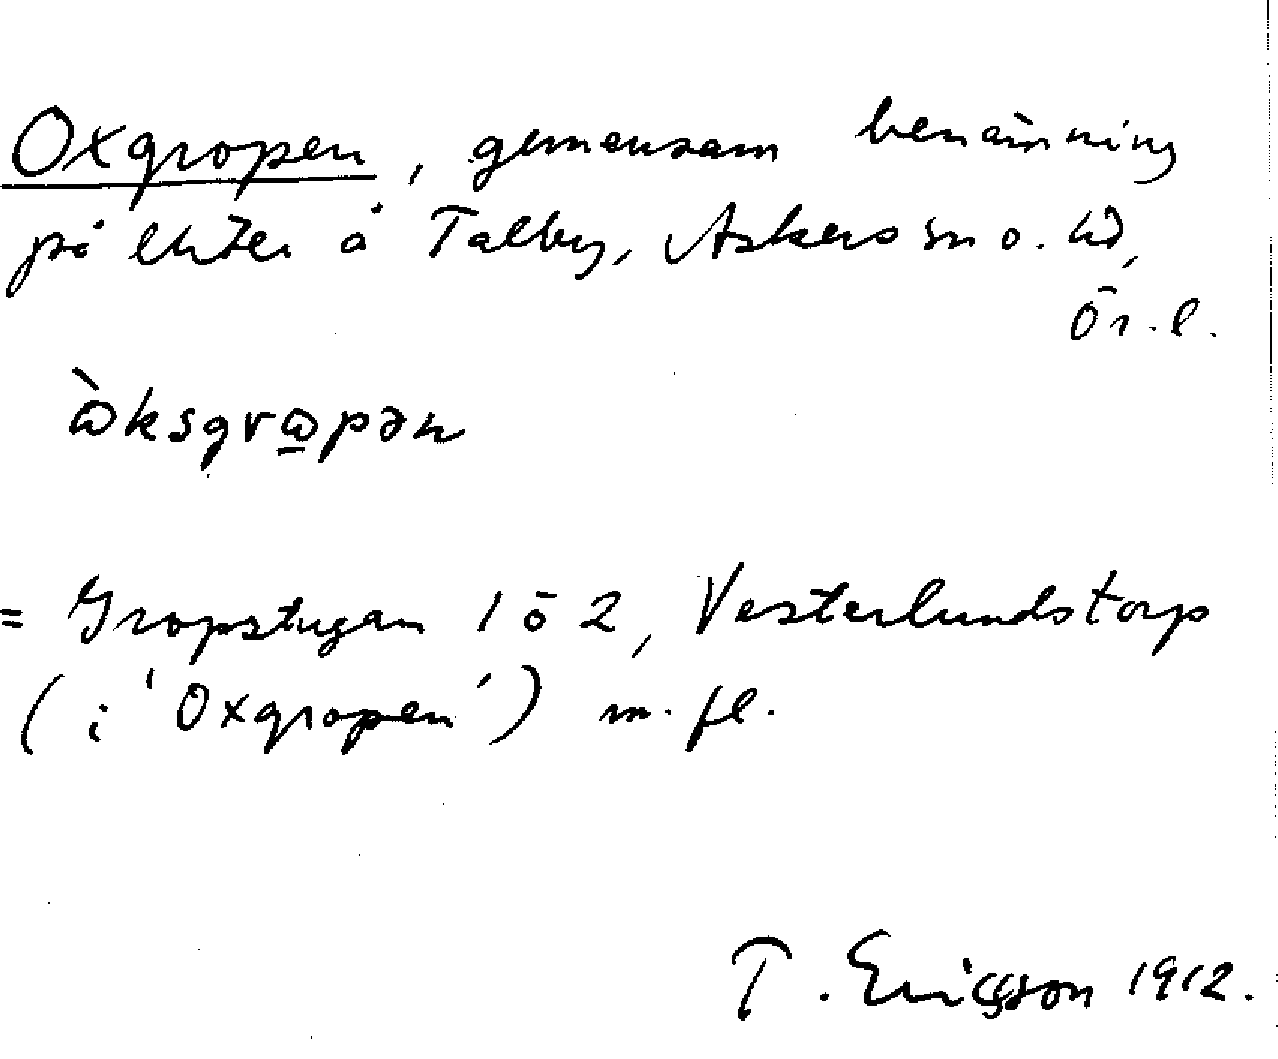 Oxgropen, gemensam benämning
på lhter å Talby, Askers sn o. hd,
Ör. l.
ὼksgrω̲pən
= Gropstugan 1 o 2, Vesterlundstorp
(i 'Oxgropen') m. fl.
T. Ericsson 1912.